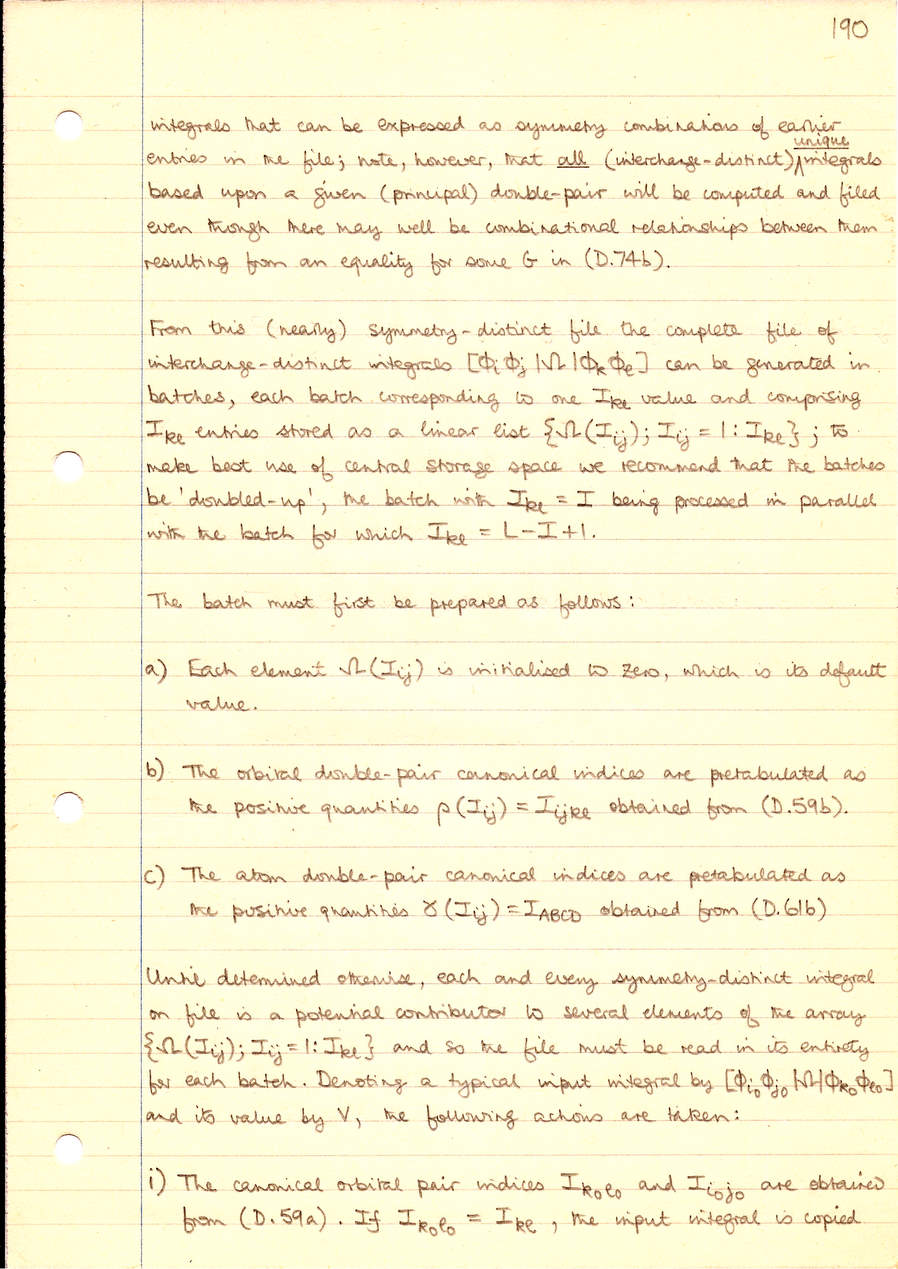 190
integrals that can be expressed as symmetry combinations of earlier
entries in the file; note, however, that all (interchange-distinct) unique integrals
based upon a given (principal) double-pair will be computed and filed
even though there may well be combinational relationships between them
resulting from an equality for some G in (D.74b).
From this (nearly) symmetry-distinct file the complete file of
interchange-distinct integrals [ϕᵢϕⱼ|Ω|ϕₖϕₗ] can be generated in
batches, each batch corresponding to one Iₖₗ value and comprising
Iₖₗ entries stored as a linear list {Ω(Iᵢⱼ); Iᵢⱼ = 1:Iₖₗ}; to
make best use of central storage space we recommend that the batches
be 'doubled-up', the batch with Iₖₗ = I being processed in parallel
with the batch for which Iₖₗ = L-I+1.
The batch must first be prepared as follows:
a) Each element Ω(Iᵢⱼ) is initialised to zero, which is its default
value.
b) The orbital double-pair canonical indices are pretabulated as
the positive quantities ρ(Iᵢⱼ) = Iᵢⱼₖₗ obtained from (D.59b).
c) The atom double-pair canonical indices are pretabulated as
the positive quantities γ(Iᵢⱼ) = I_ABCD obtained from (D.61b)
Until determined otherwise, each and every symmetry-distinct integral
on file is a potential contributor to several elements of the array
{Ω(Iᵢⱼ); Iᵢⱼ = 1:Iₖₗ} and so the file must be read in its entirety
for each batch. Denoting a typical input integral by [ϕᵢ₀ϕⱼ₀|Ω|ϕₖ₀ϕₗ₀]
and its value by V, the following actions are taken:
i) The canonical orbital pair indices Iₖ₀ₗ₀ and Iᵢ₀ⱼ₀ are obtained
from (D.59a). If Iₖ₀ₗ₀ = Iₖₗ, the input integral is copied